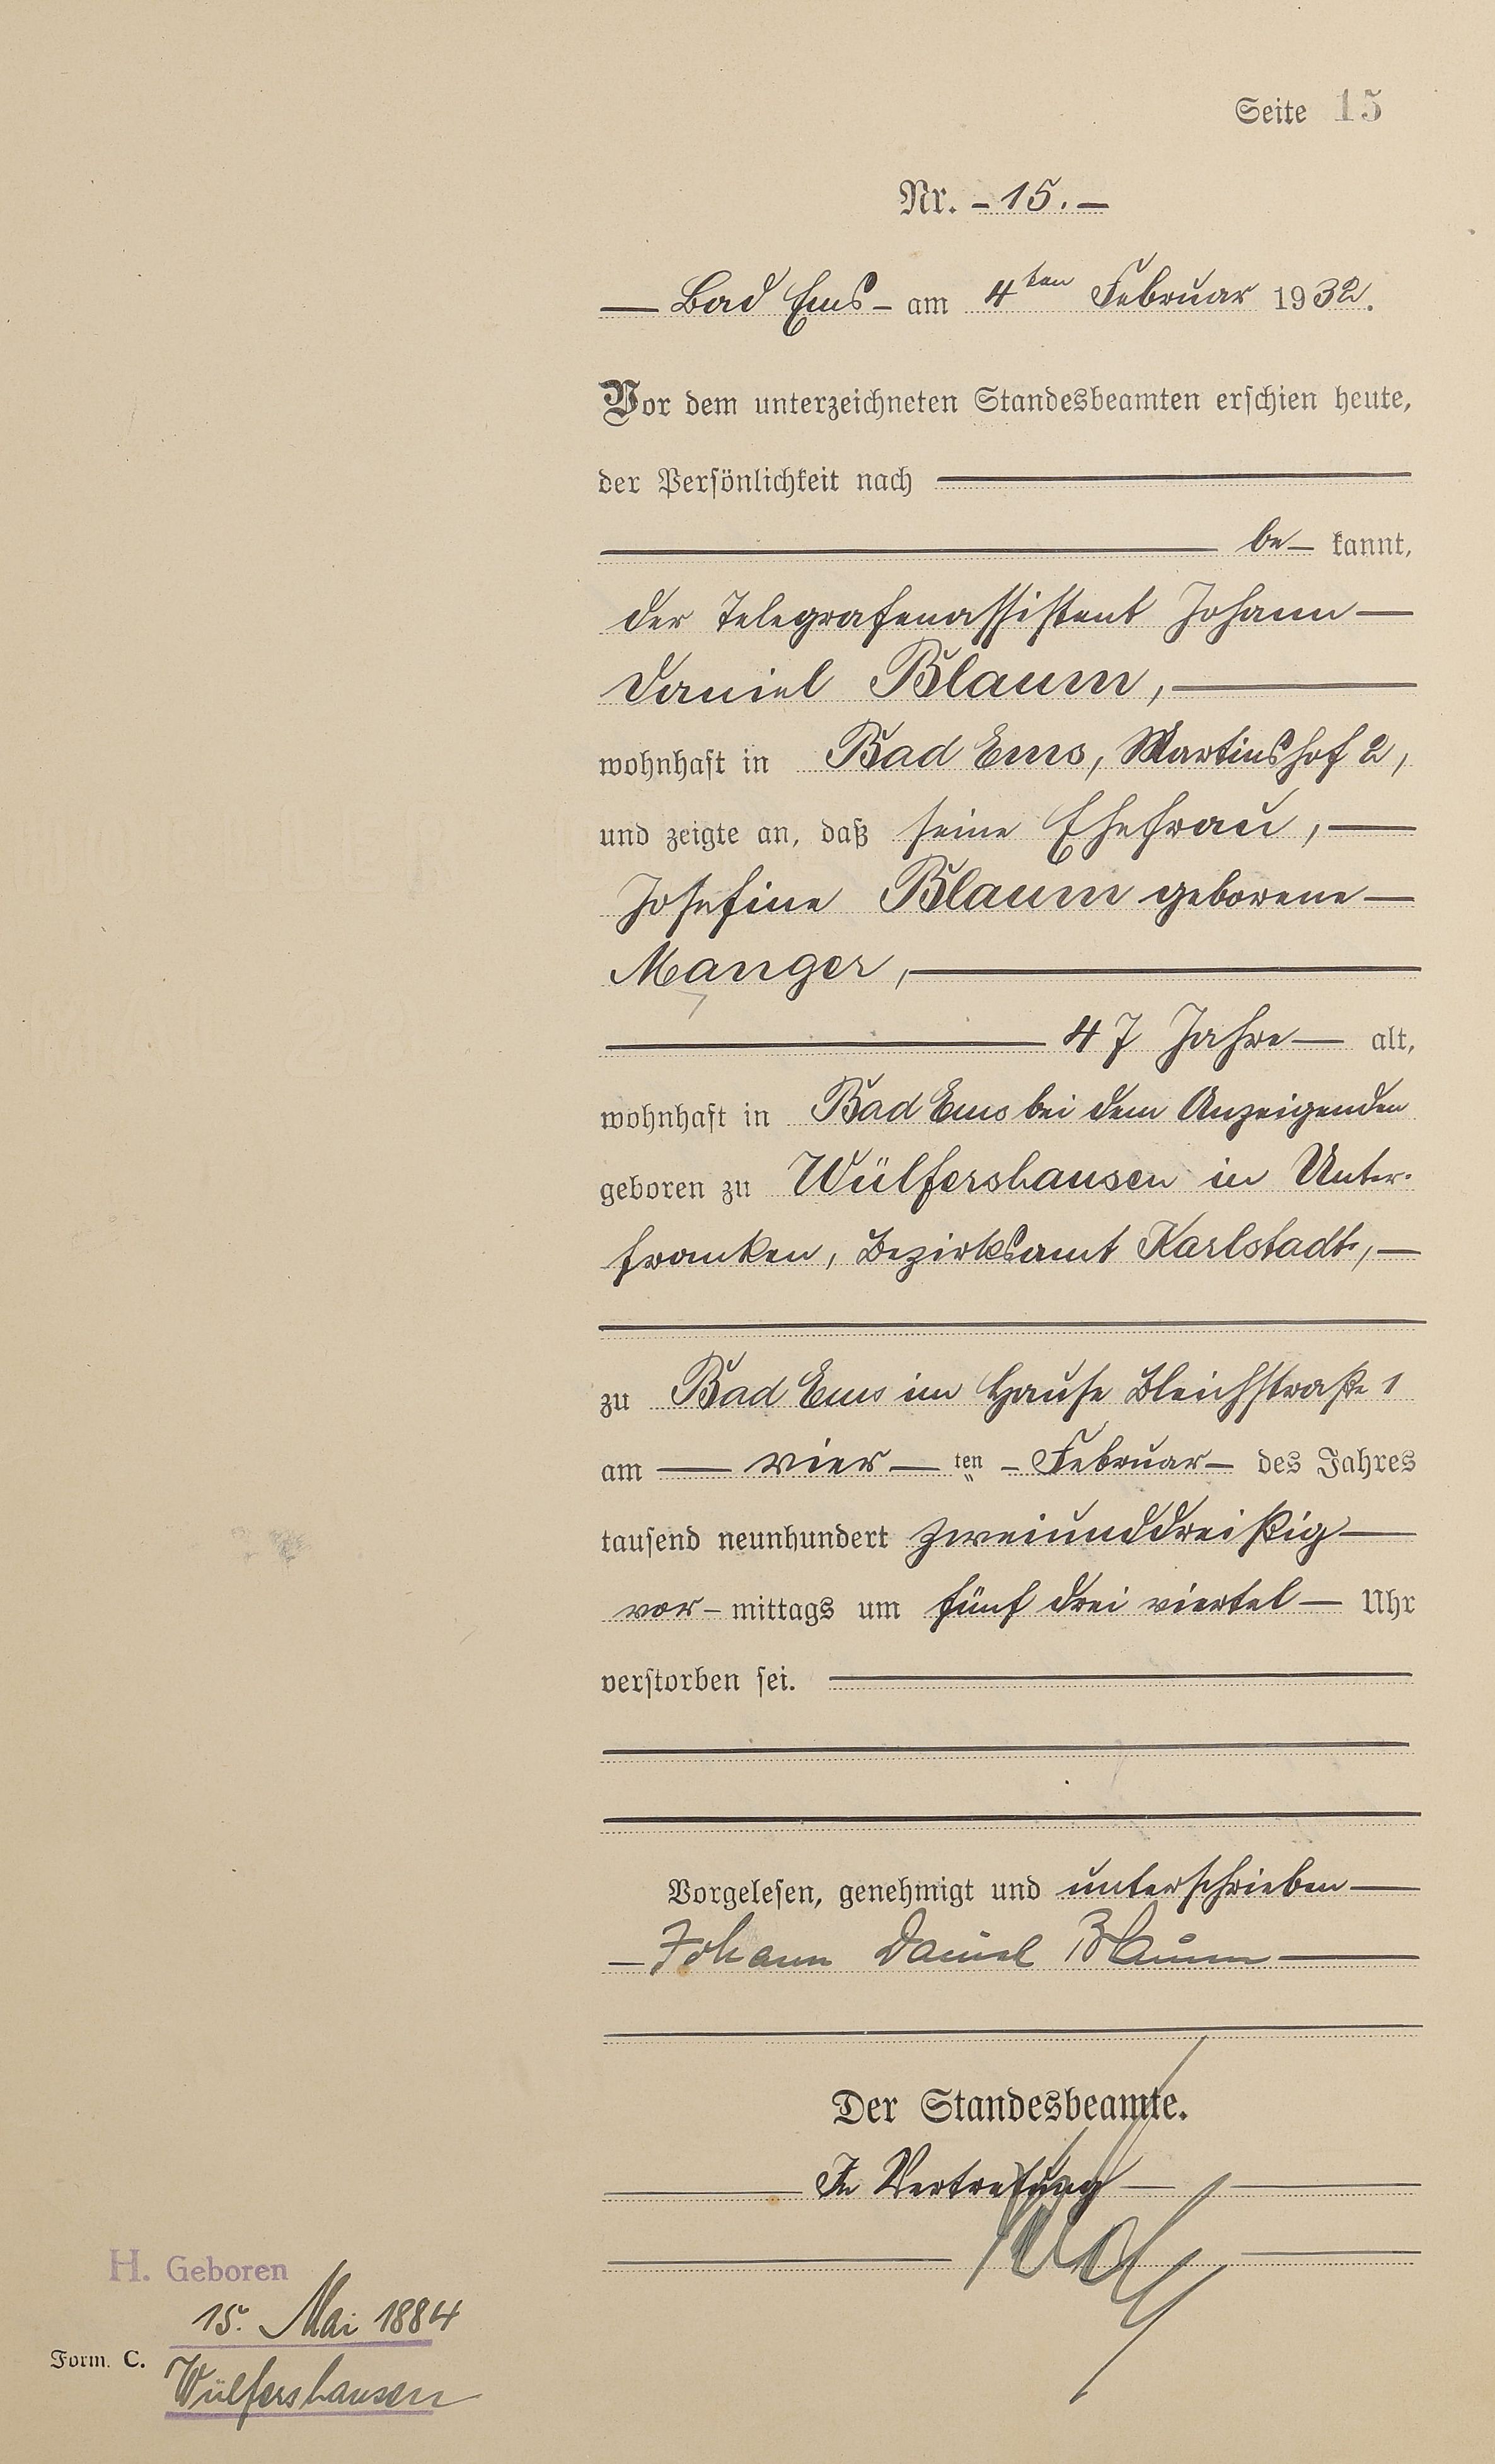 Seite 15
Nr. - 15. -
— Bad Ems - am 4ten Februar 1932.
Vor dem unterzeichneten Standesbeamten erschien heute,
der Persönlichkeit nach
be- kannt,
der Telegrafenassistent Johann
Daniel Blaum,
wohnhaft in Bad Ems, Martinshof 2,
und zeigte an, daß seine Ehefrau,
Josefine Blaum geborene
Manger,
47 Jahre alt,
wohnhaft in Bad Ems bei dem Anzeigenden
geboren zu Wülfershausen in Unter-
franken, Bezirksamt Karlstadt,
zu Bad Ems im Hause Bleichstraße 1
am vier ten Februar des Jahres
tausend neunhundert zweiunddreißig
vor-mittags um fünf drei viertel Uhr
verstorben sei.
Vorgelesen, genehmigt und unterschrieben
Johann Daniel Blaum
Der Standesbeamte.
In Vertretung
H. Geboren
15. Mai 1884
Form. C.
Wülfershausen